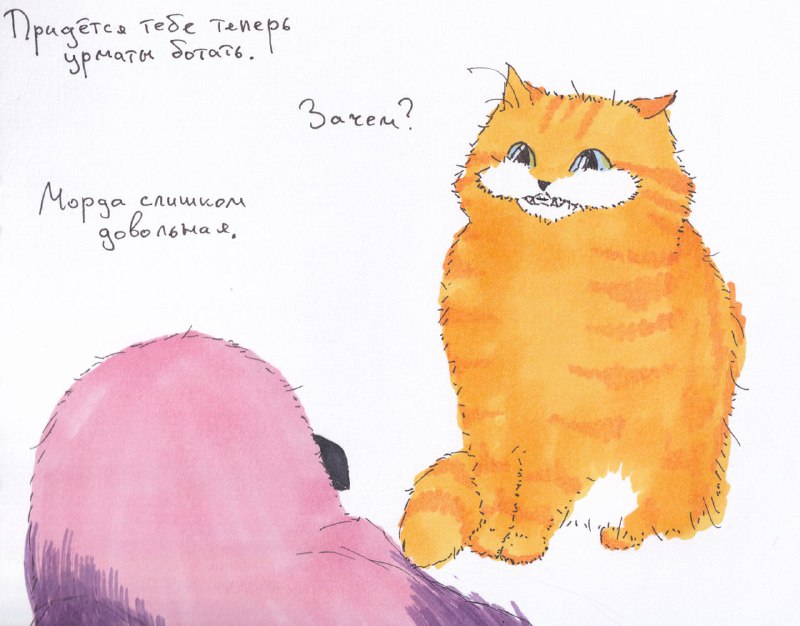 Придётся тебе теперь
урматы ботать.
Зачем?
Морда слишком
довольная.